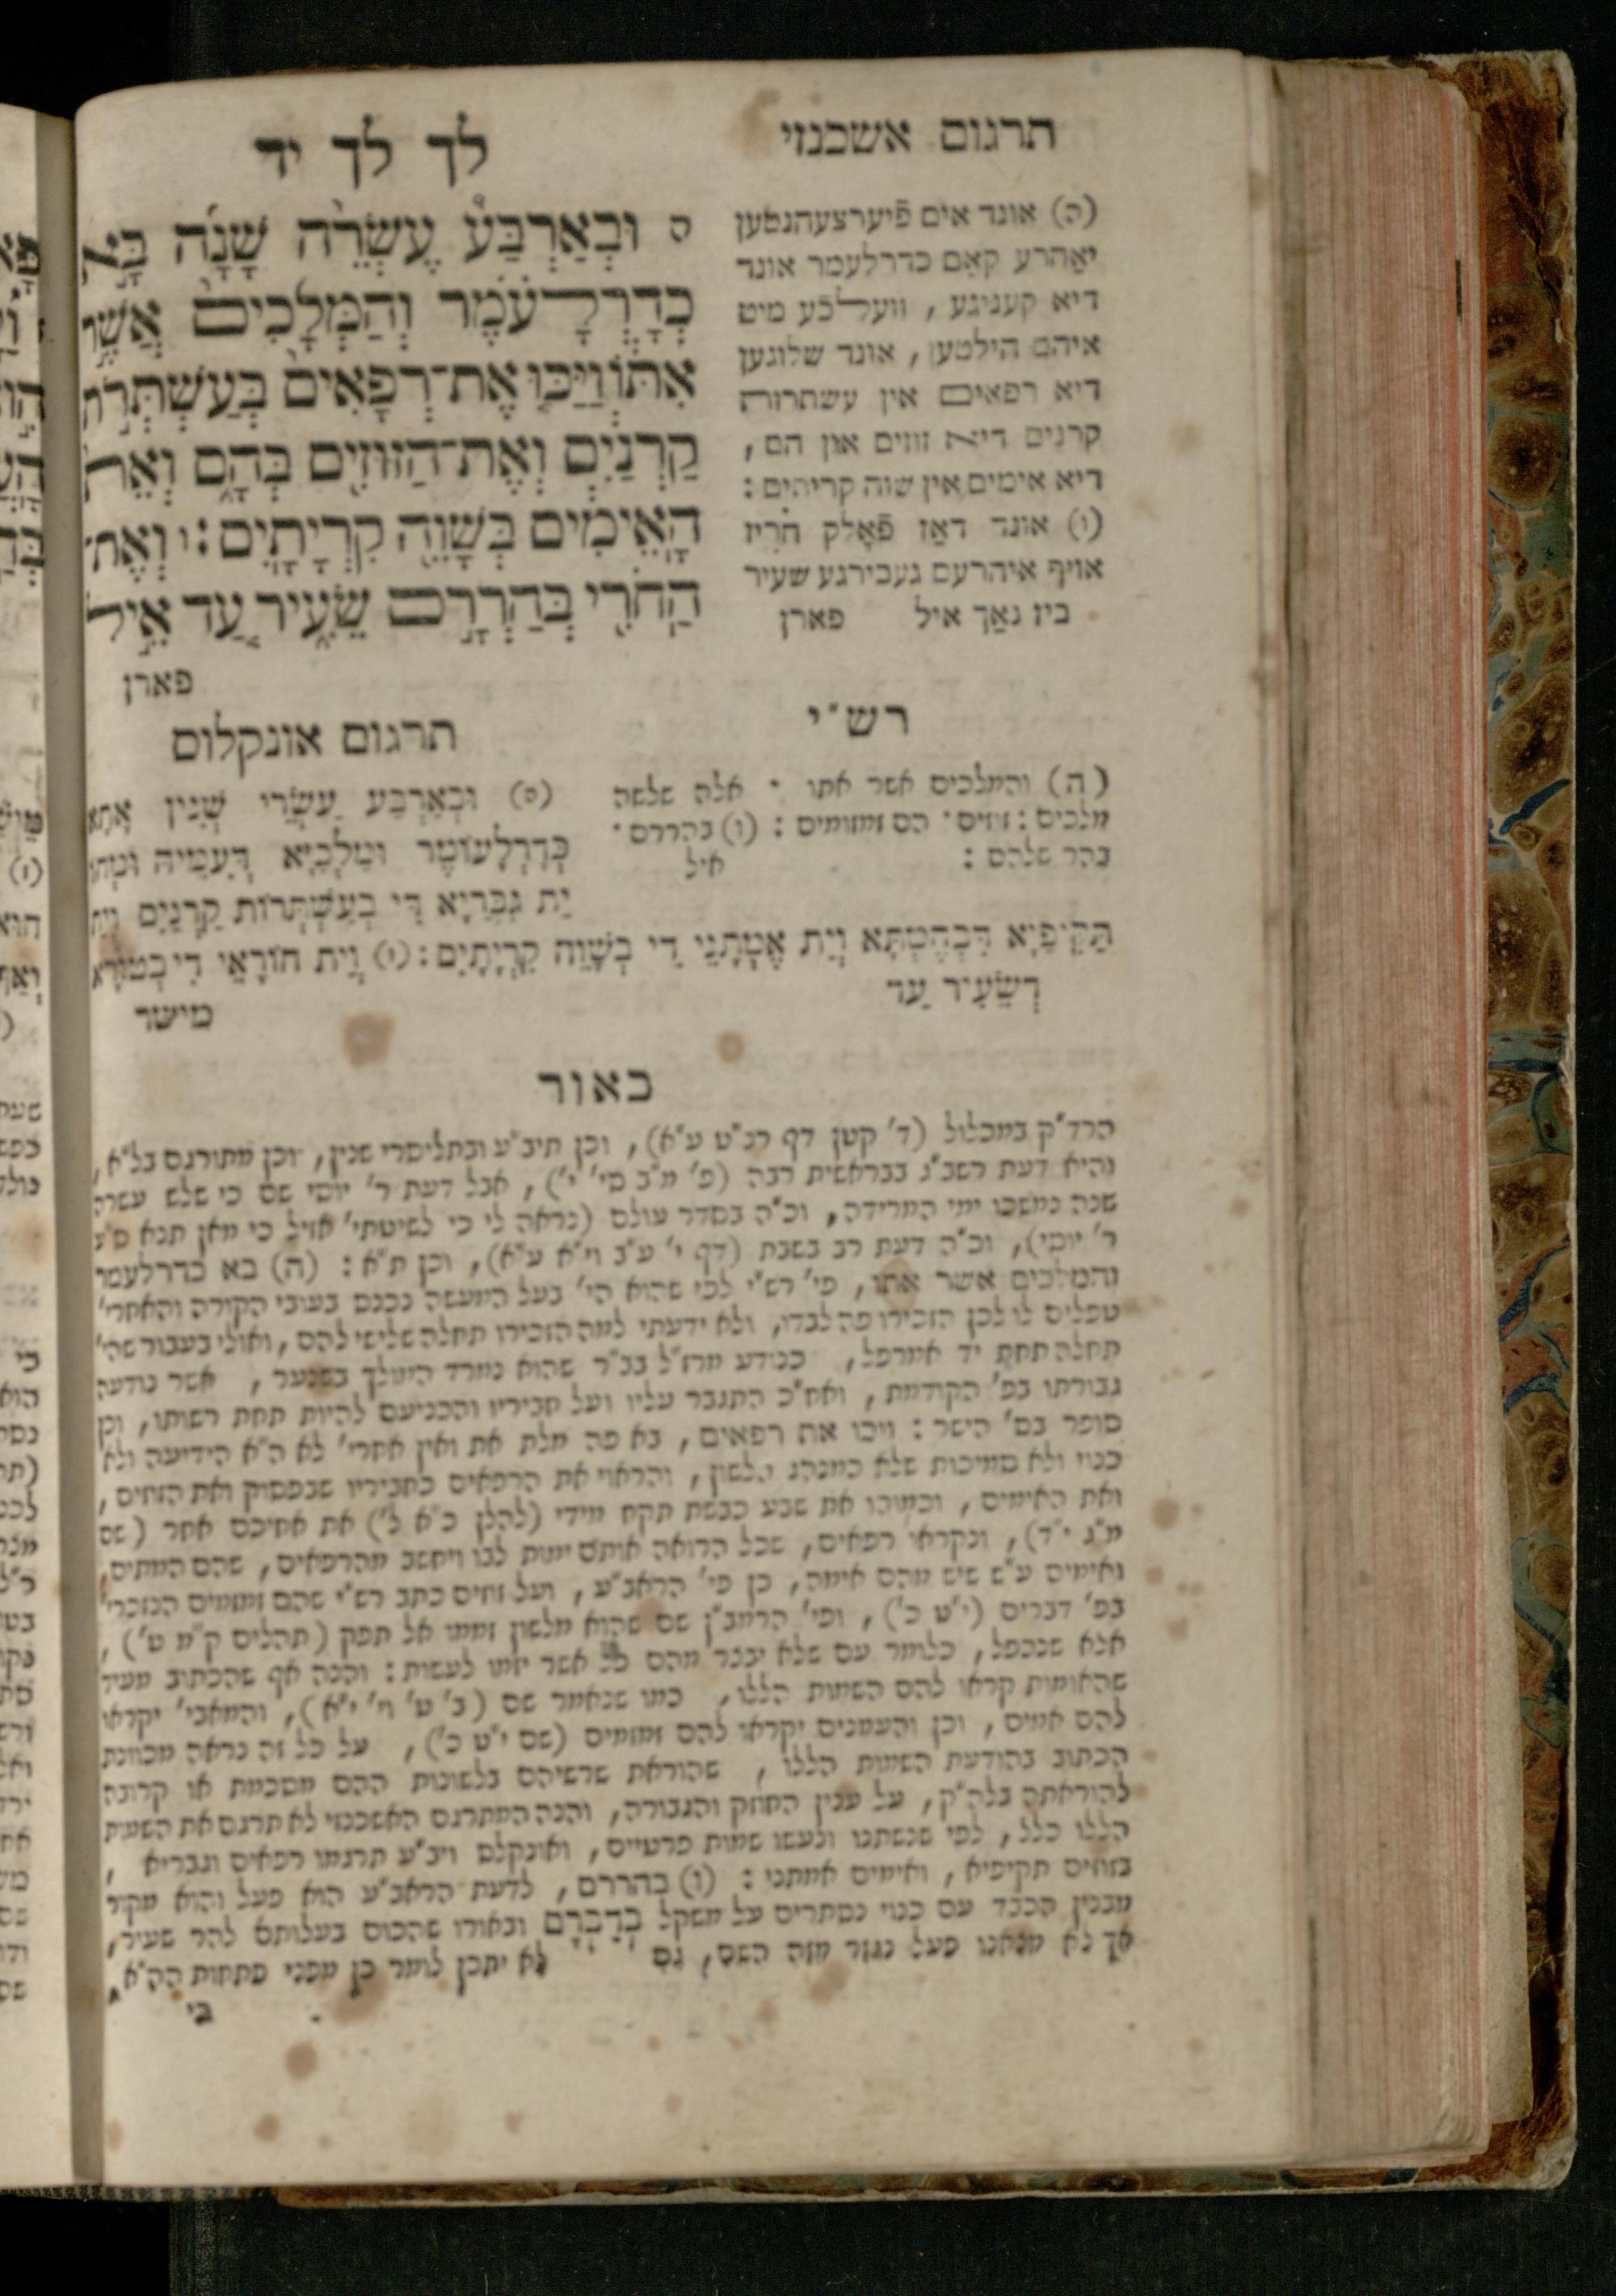 תרגום אשכנזי
לך לך יד
(ה) אונד אים פֿיערצעהנטען
יאַהרע קאַם כדרלעמר אונד
דיא קעניגע, וועלכֿע מיט
איהם הילטען, אונד שלוגען
דיא רפאים אין עשתרות
קרנים דיא זוזים און הם,
דיא אימים אין שוה קריתים:
(ו) אונד דאַז פֿאָלק חרי
אויף איהרעם געבירגע שעיר
ביז נאַך איל פארן
ה וּבְאַרְבַּע עֶשְׂרֵה שָׁנָה בָּא
כְדָרְלָעֹמֶר וְהַמְּלָכִים אֲשֶׁר
אִתּוֹ וַיַּכּוּ אֶת־רְפָאִים בְּעַשְׁתְּרֹת
קַרְנַיִם וְאֶת־הַזּוּזִים בְּהָם וְאֵת
הָאֵימִים בְּשָׁוֵה קִרְיָתָיִם: ו וְאֶת־
הַחֹרִי בְּהַרְרָם שֵׂעִיר עַד אֵיל
פארן
רש״י
(ה) והמלכים אשר אתו · אלה שלשה
מלכים: זוזים · הם זמזומים: (ו) בהררם ·
בהר שלהם: איל
תרגום אונקלוס
(ה) וּבְאַרְבַּע עַשְׂרֵי שְׁנִין אֲתָא
כְּדָרְלָעוֹמֶר וּמַלְכַיָּא דְּעִמֵּיהּ וּמְחוֹ
יַת גִּבָּרַיָּא דִּי בְעַשְׁתְּרוֹת קַרְנַיִם וְיַת
תַּקִּיפַיָּא דִּבְהֶמְתָּא וְיַת אֵמְתָנֵי דִּי בְשָׁוֵה קִרְיָתָיִם: (ו) וְיַת חוֹרָאֵי דִּי בְטוּרָא
דְשֵׂעִיר עַד
מישר
באור
הרד״ק במכלול (ד׳ קטן דף רנ״ט ע״א), וכן תיב״ע ובתליסרי שנין, וכן מתורגם בל״א,
והיא דעת רשב״ג בבראשית רבה (פ׳ מ״ב סי׳ י׳), אבל דעת ר׳ יוסי שם כי שלש עשרה
שנה נמשכו ימי המרידה, וכ״ה בסדר עולם (נראה לי כי לשיטתי׳ אזיל כי מאן תנא ס״ע
ר׳ יוסי), וכ״ה דעת רב בשבת (דף י׳ ע״ב וי״א ע״א), וכן ת״א: (ה) בא כדרלעמר
והמלכים אשר אתו, פי׳ רש״י לפי שהוא הי׳ בעל המעשה נכנס בעובי הקורה והאחרי׳
טפלים לו לכן הזכירו פה לבדו, ולא ידעתי למה הזכירו תחלה שלישי להם, ואולי בעבור שהי׳
תחלה תחת יד אמרפל, כנודע מרז״ל בב״ר שהוא נמרד המולך בשנער, אשר נודעה
גבורתו בפ׳ הקודמת, ואח״כ התגבר עליו ועל חביריו והכניעם להיות תחת רשותו, וכן
סופר בס׳ הישר: ויכו את רפאים, בא פה מלת את ואין אחרי׳ לא ה״א הידיעה ולא
כנוי ולא סמיכות שלא כמנהג הלשון, והראוי את הרפאים כחביריו שבפסוק ואת הזוזים,
ואת האימים, וכמוהו את שבע כבשת תקח מידי (להלן כ״א ל׳) את אחיכם אחר (שם
מ״ג י״ד), ונקראו רפאים, שכל הרואה אותם ימות לבו ויחשב מהרפאים, שהם המתים,
ואימים ע״ש שיש מהם אימה, כן פי׳ הראב״ע, ועל זוזים כתב רש״י שהם זמזמים הנזכרי׳
בפ׳ דברים (י״ט כ׳), ופי׳ הרמב״ן שם שהוא מלשון זממו אל תפק (תהלים ק״מ ט׳),
אלא שנכפל, כלומר עם שלא יבצר מהם כל אשר יזמו לעשות: והנה אף שהכתוב מעיד
שהאומות קראו להם השמות הללו, כמו שנאמר שם (ב׳ ט׳ וי׳ י״א), והמאבי׳ יקראו
להם אמים, וכן והעמנים יקראו להם זמזמים (שם י״ט כ׳), על כל זה נראה מכוונת
הכתוב בהודעת השמות הללו, שהוראת שרשיהם בלשונות ההם מסכמת או קרובה
להוראתה בלה״ק, על ענין החוזק והגבורה, והנה המתרגם האשכנזי לא תרגם את השמות
הללו כלל, לפי שנשתנו ונעשו שמות פרטיים, ואונקלס ויב״ע תרגמו רפאים וגבריא,
בזוזים תקיפיא, ואימים אמתני: (ו) בהררם, לדעת הראב״ע הוא פעל והוא מקור
מבנין הכבד עם כנוי נסתרים על משקל בְדַבְּרָם ובאורו שהכום בעלותם להר שעיר,
אך לא מצאנו פעל נגזר מזה השם, גם לא יתכן לומר כן מפני פתחות הה״א,
בי